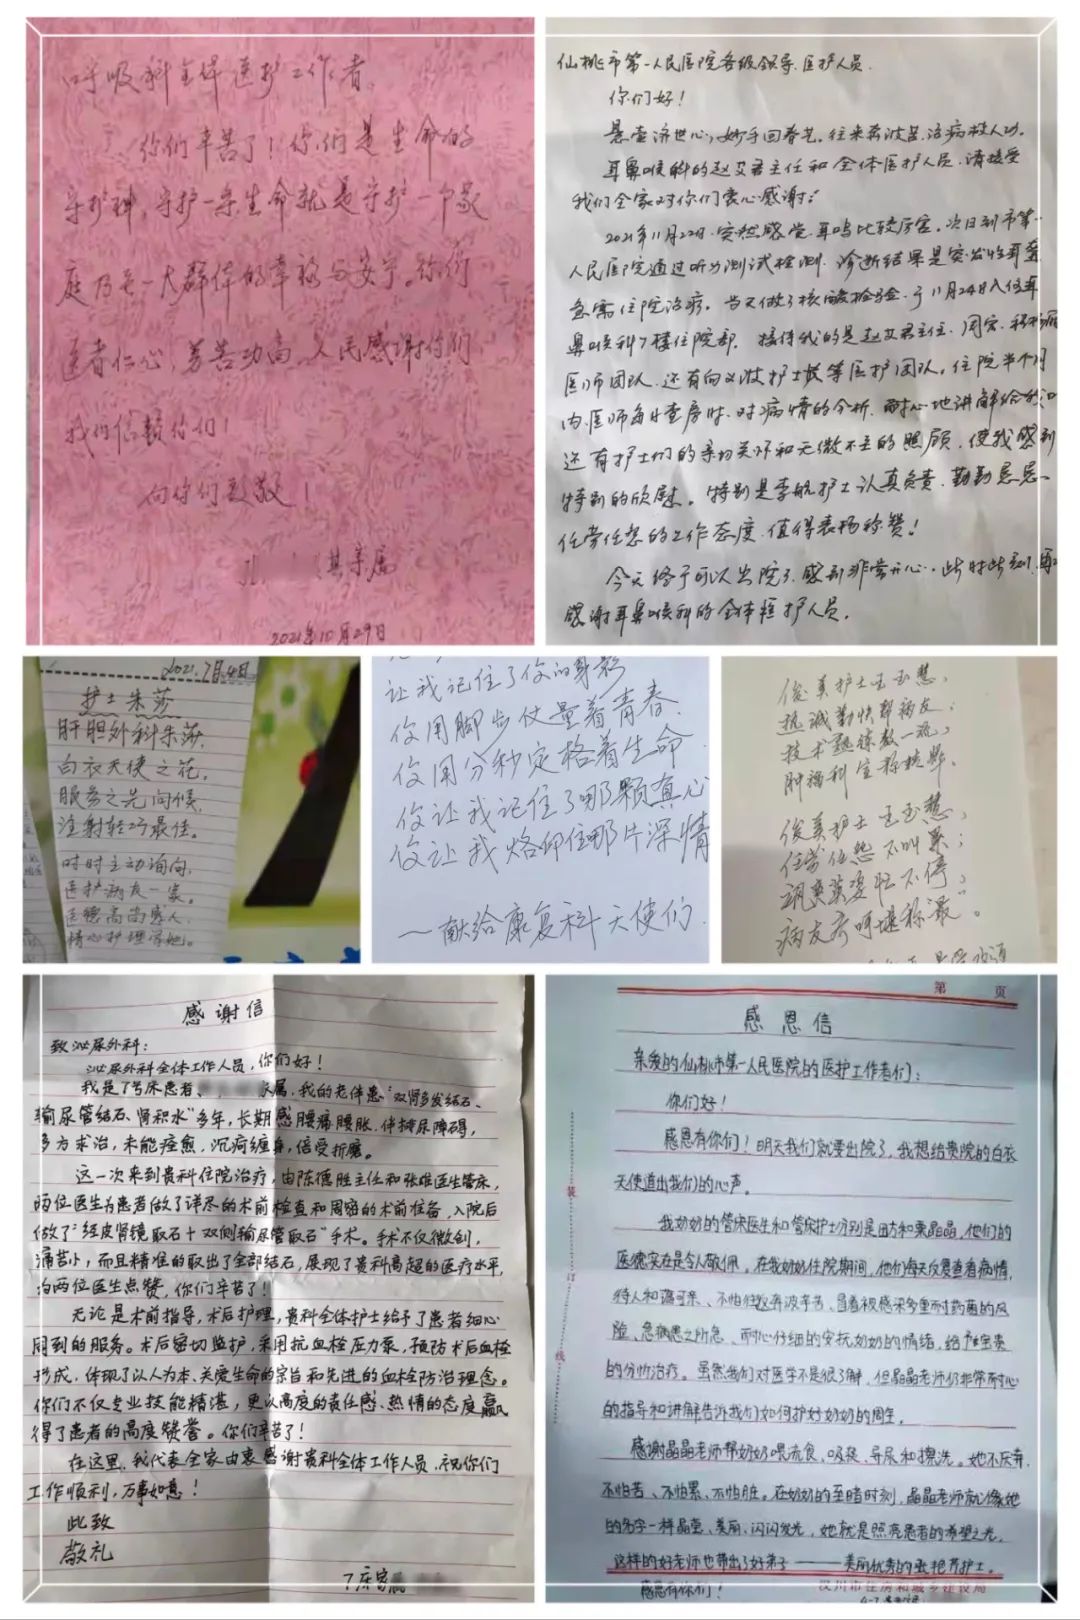 呼吸科全体医护工作者
你们辛苦了！你们是生命的
守护神，守护一条生命就是守护一个家
庭乃至一大群体的幸福与安宁。你们
医者仁心，劳苦功高，人民感谢你们
我们信赖你们！
向你们致敬！
其亲属
2021年10月29日
仙桃市第一人民医院各级领导、医护人员
你们好！
悬壶济世心，妙手回春艺。往来奔波苦，治病救人功。
耳鼻喉科的赵艾君主任和全体医护人员，请接受
我们全家对你们衷心感谢：
2021年11月22日，突然感觉耳鸣比较厉害。次日到市第一
人民医院通过听力测试检测，诊断结果是突发性耳聋
急需住院治疗。当天做了核酸检验，于11月24日入住耳
鼻喉科7楼住院部。接待我的是赵艾君主任、周宏、程杨
医师团队，还有向义波护士长等医护团队。住院半个月
内，医师每日查房时，对病情的分析，耐心地讲解给我
还有护士们的亲切关怀和无微不至的照顾，使我感到
特别的欣慰。特别是李航护士认真负责，勤勤恳恳、
任劳任怨的工作态度，值得表扬称赞！
今天终于可以出院了，感到非常开心，此时此刻，再
感谢耳鼻喉科的全体医护人员。
2021.7月4日
护士朱莎
肝胆外科朱莎，
白衣天使之花，
服务之先问候，
注射轻巧最佳。
时时主动询问，
医护病友一家。
医德高尚感人，
精心护理学她。
让我记住了你的身影
你用脚步丈量着青春
你用分秒定格着生命
你让我记住了那颗真心
你让我烙印住那片深情
—献给康复科天使们
俊美护士王玉慧，
热诚勤快帮病友；
技术熟练数一流，
肿瘤科室称枝华。
俊美护士王玉慧，
任劳任怨不叫累；
病友齐呵堪称最。
感谢信
致泌尿外科：
泌尿外科全体工作人员，你们好！
我是7号床患者、家属，我的老伴患“双肾多发结石、
输尿管结石、肾积水”多年，长期感腰痛腰胀，伴排尿障碍，
多方求治，未能痊愈，沉疴缠身，倍受折磨。
这一次来到贵科住院治疗，由陈德胜主任和张难医生管床，
两位医生为患者做了详尽的术前检查和周密的术前准备，入院后
做了“经皮肾镜取石+双侧输尿管取石”手术。手术不仅微创，
痛苦小，而且精准的取出了全部结石，展现了贵科高超的医疗水平，
为两位医生点赞，你们辛苦了！
无论是术前指导，术后护理，贵科全体护士给予了患者细心
周到的服务。术后密切监护，采用抗血栓压力泵，预防术后血栓
形成，体现了以人为本、关爱生命的宗旨和先进的血栓防治理念。
你们不仅专业技能精湛，更以高度的责任感、热情的态度赢
得了患者的高度赞誉。你们辛苦了！
在这里，我代表全家由衷感谢贵科全体工作人员，祝你们
工作顺利，万事如意！
此致
敬礼
7床家属
第 页
感恩信
亲爱的仙桃市第一人民医院的医护工作者们：
你们好！
感恩有你们！明天我们就要出院了，我想给贵院的白衣
天使道出我们的心声。
我奶奶的管床医生和管床护士分别是田方和栗晶晶，他们的
医德实在是令人敬佩。在我奶奶住院期间，他们每天反复查看病情，
待人和蔼可亲、不怕往返奔波辛苦、冒着被感染多重耐药菌的风
险，急病患之所急、耐心仔细的安抚奶奶的情绪，给予宝贵
的分析治疗。虽然我们对医学不是很了解，但晶晶老师仍非常耐心
的指导和讲解告诉我们如何护好奶奶的周全。
感谢晶晶老师帮奶奶喂流食、吸痰、导尿和擦洗。她不厌弃、
不怕苦、不怕累、不怕脏。在奶奶的至暗时刻，晶晶老师就像她
的名字一样晶莹、美丽、闪闪发光，她就是照亮患者的希望之光，
这样的好老师也带出了好弟子——美丽优秀的张艳芳护士。
感恩有你们！
装
订
线
汉川市住房和城乡建设局